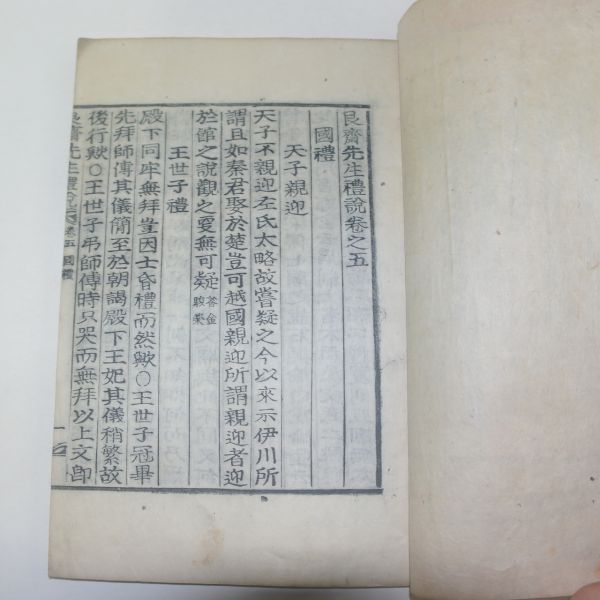 艮齋先生禮說卷之五
國禮
天子親迎
天子不親迎左氏太略故嘗疑之今以來示伊川所
謂且如秦君娶於楚豈可越國親迎所謂親迎者迎
於館之說觀之更無可疑答金駿榮
王世子禮
殿下同牢無拜豈因士昏禮而然歟〇王世子冠畢
先拜師傅其儀簡至於朝謁殿下王妃其儀稍繁故
後行歟〇王世子弔師傅時只哭而無拜以上文卽
艮齋先生禮說 卷五 國禮
一